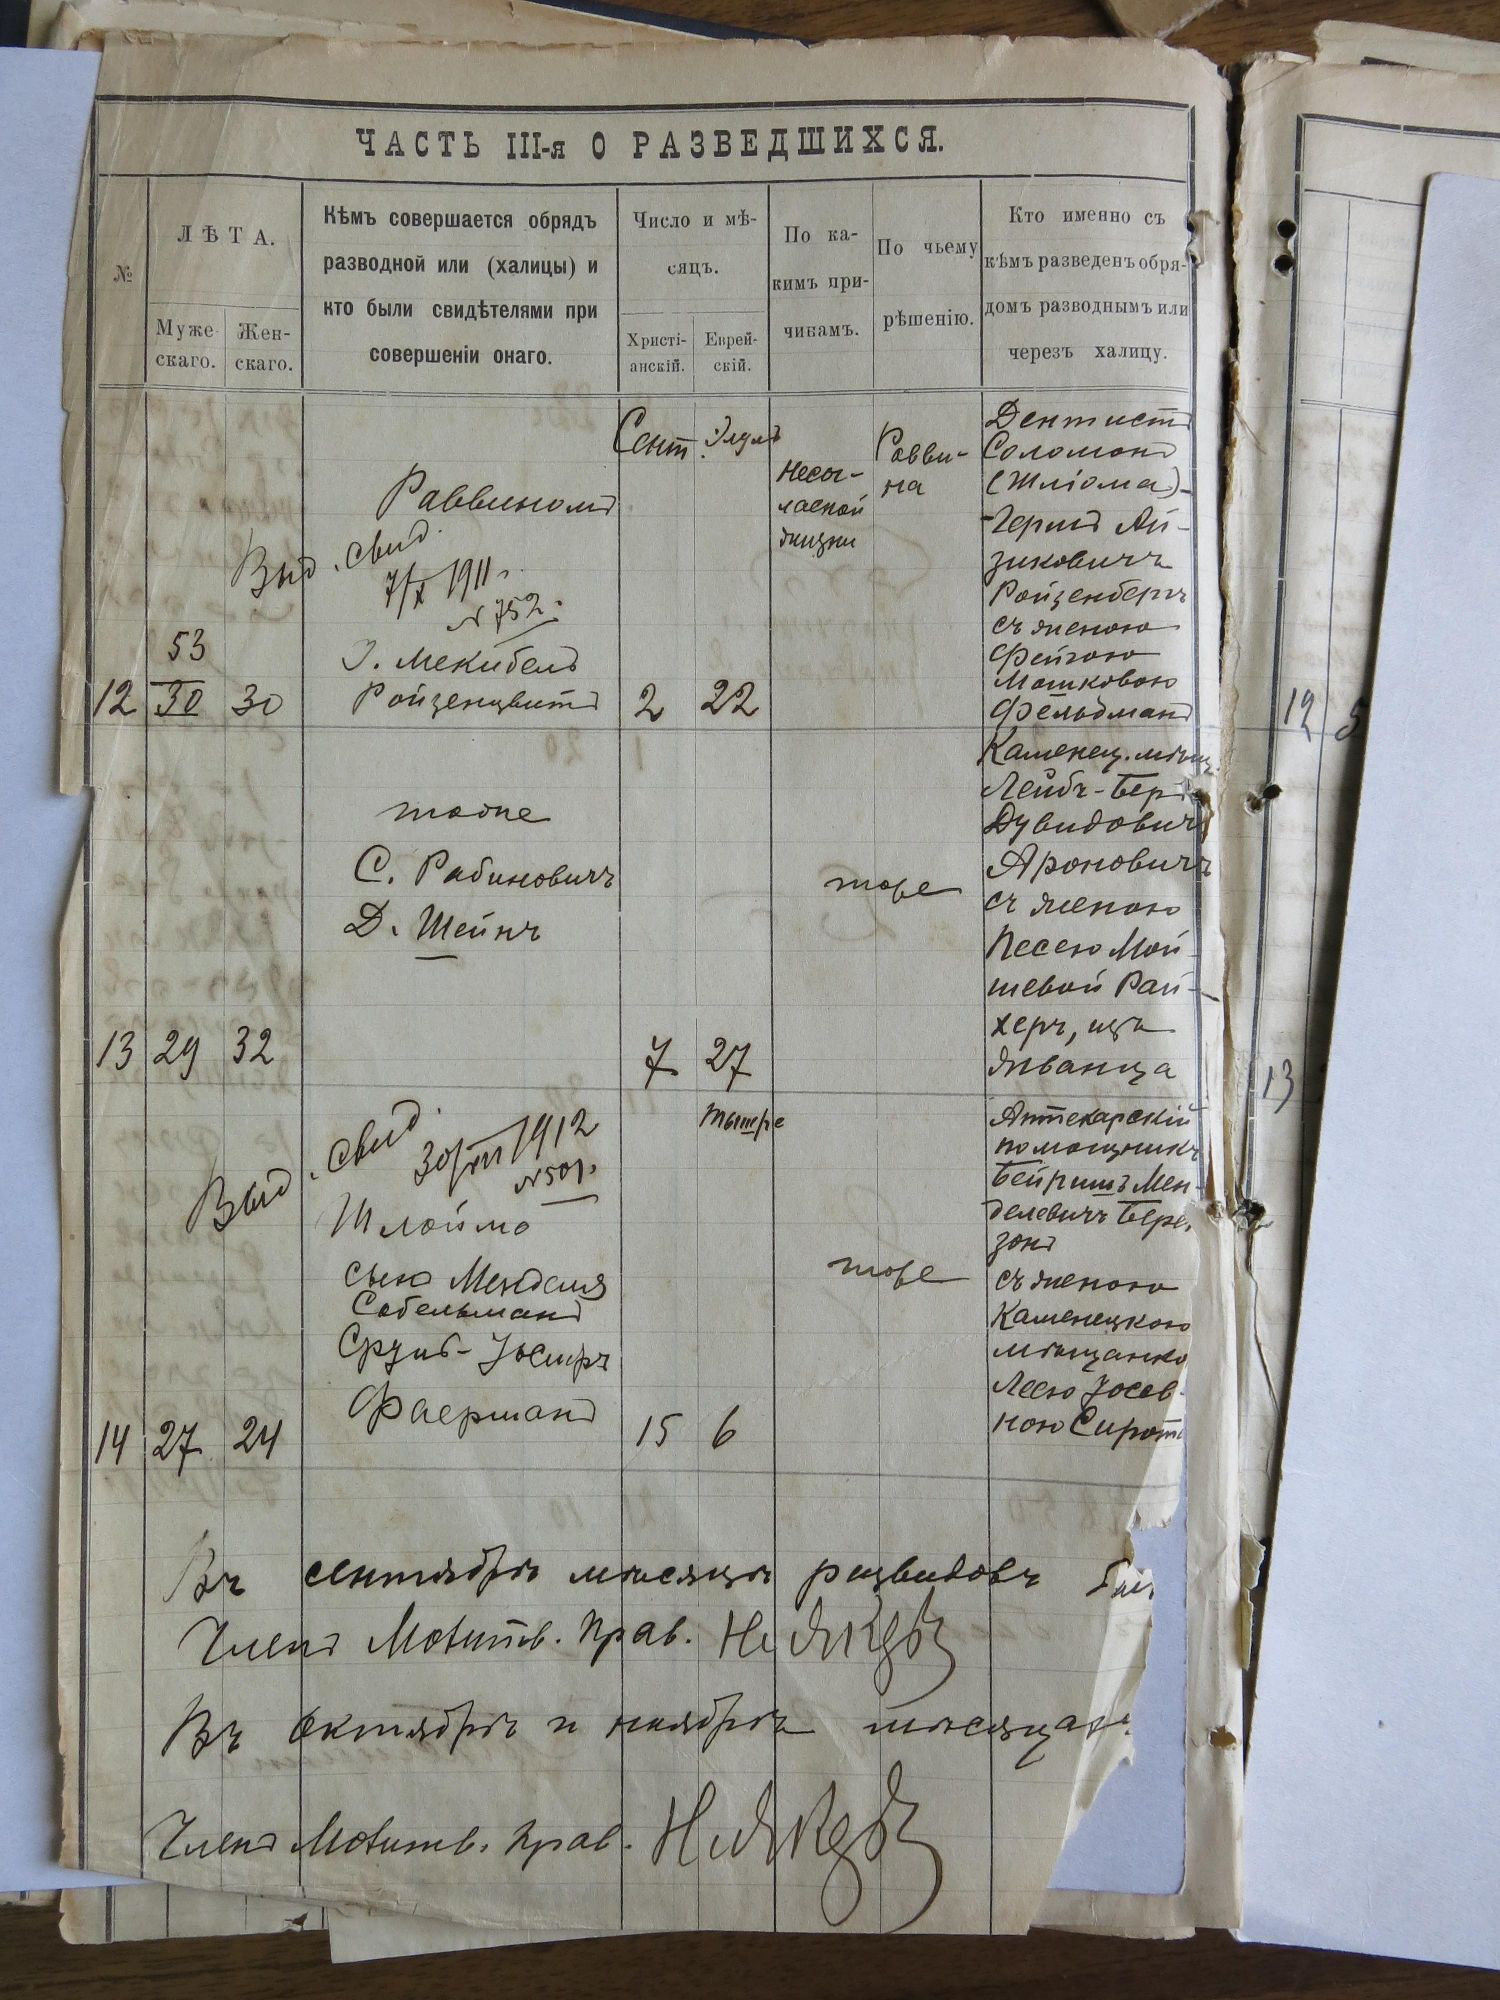 ЧАСТЬ III-я О РАЗВЕДШИХСЯ.
№
ЛѢТА.
Муже-
скаго.
Жен-
скаго.
Кѣмъ совершается обрядъ
разводной или (халицы) и
кто были свидѣтелями при
совершеніи онаго.
Число и мѣ-
сяцъ.
Христі-
анскій.
Еврей-
скій.
По ка-
кимъ при-
чинамъ.
По чьему
рѣшенію.
Кто именно съ
кѣмъ разведенъ обря-
домъ разводнымъ или
черезъ халицу.
12
53
30
30
Раввиномъ
Выд. свид.
7/X 1911 г.
№ 752.
Ройзенцвитъ
Сент.
2
Элулъ
22
Несог-
ласной
жизни
Равви-
на
Дентистъ
Соломонъ
(Шліома)-
-Гершъ Ай-
зиковичъ
Ройзенбергъ
съ женою
Фейгою
Мошковою
Фельдманъ
13
29
32
тоже
С. Рабиновичъ
Д. Шейнъ
7
27
тоже
Каменец. мѣщ.
Лейбъ-Беръ
Дувидовичъ
Ароновичъ
съ женою
Песею Мой-
шевой Рай-
херъ, изъ
Жванца
14
27
24
Выд. свид.
1912
№ 501.
Шлойма
сынъ Менделя
Сабельманъ
Сруль-Іосифъ
Фаерманъ
15
Тышре
6
тоже
Аптекарскій
помощникъ
Бейришъ Мен-
делевичъ Бере-
зонъ
съ женою
Каменецкою
мѣщанко
Леею Іосев-
ною Сирот
Въ сентябрѣ мѣсяцѣ разводовъ
Членъ Молитв. Прав.
Въ октябрѣ и ноябрѣ мѣсяцах
Членъ Молитв. Прав.
12
13